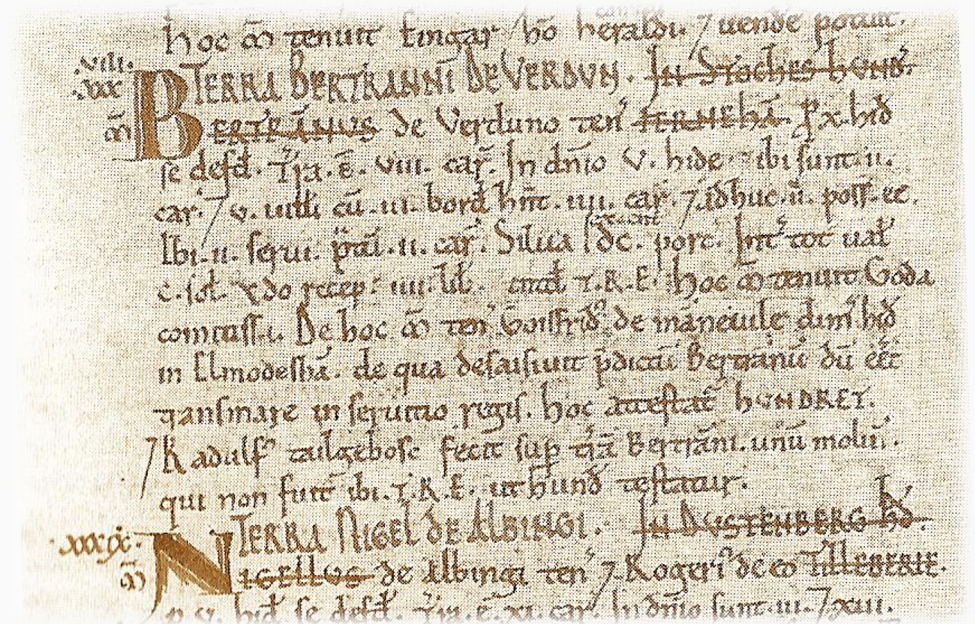 hoc ꝏ tenuit Eingar hō heraldi. ⁊ uende potuit.
.viii. .xxx. TERRA BERTRANNI DE VERDUN. IN STOCHES HUND.
ꝏ BERTRANUS de Verduno ten FERNEHA. ꝑ x. hid
se defđ. Tra. ē. viii. car. In dnio v. hide. ibi sunt .ii.
car. ⁊ v. uilli cū .vi. bord hnt. car. ⁊ adhuc .ii. poss. ee.
Ibi .ii. serui. ptū .ii. car. Silua dc. porc. Int tot ual
c. sol. Qdo recep: iiii. lib. T.R.E. hoc ꝏ tenuit Goda
comitiss. De hoc ꝏ ten Goisfrid de maneuile dim hid
in Elmodesha. de qua desaisiuit pdictū Bertranū dū eet
transmare in seruitio regis. hoc attestat hUNDRET.
⁊ Radulf tailgebosc fecit sup trā Bertrani. unū molin.
qui non fuit ibi. T.R.E. ut hund testatur.
TERRA NIGEL DE ALBINGI. IN DUSTENBERG hD.
ꝏ NIGELLUS de Albingi ten ⁊ Rogeri de eo TILLEBERIE.
p v. hid se defđ. Tra. ē. xi. car. In dnio sunt .iii. ⁊ xiii.